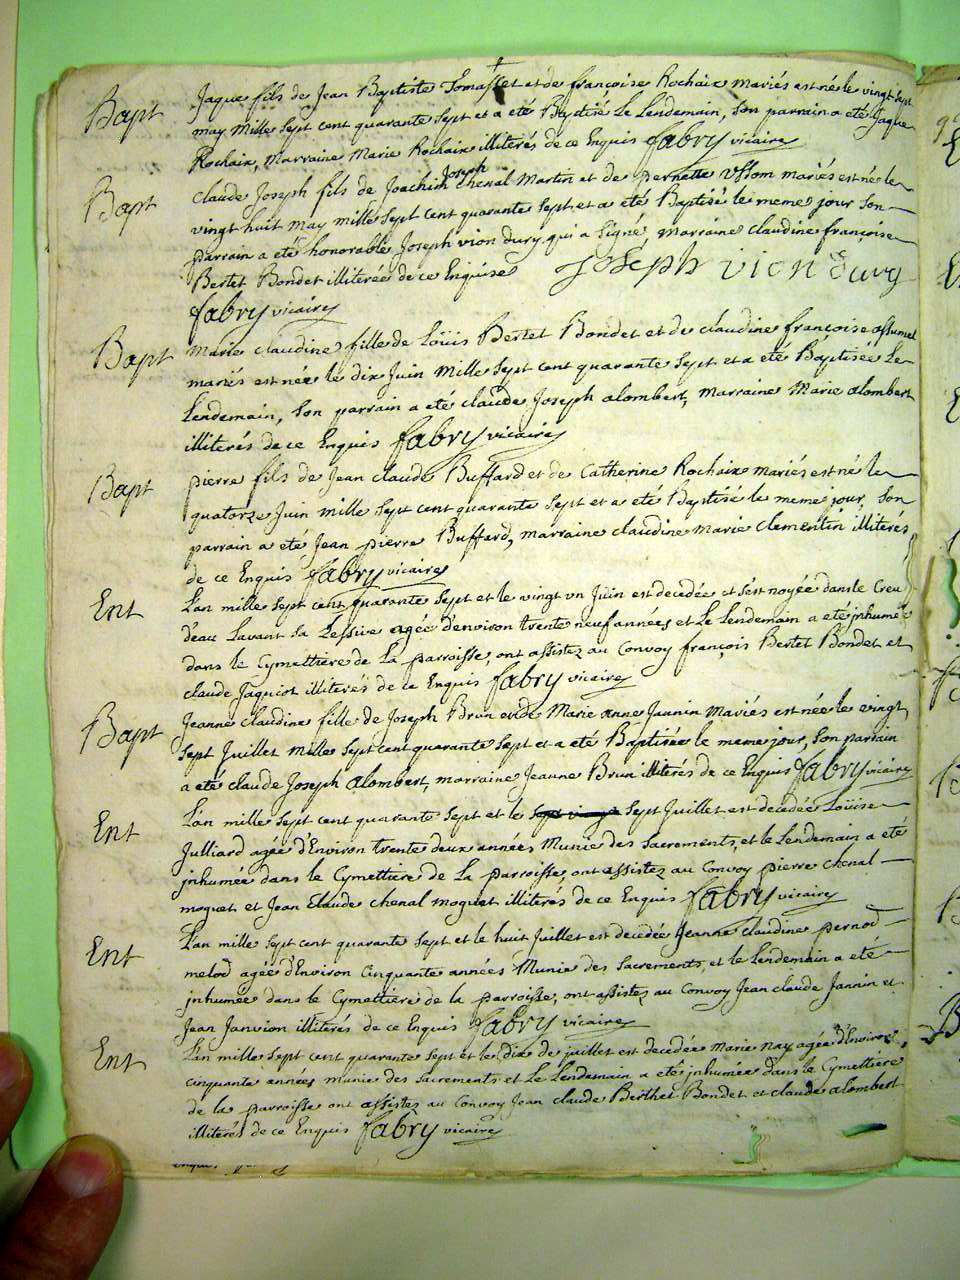 Bapt Jaque fils de Jean Baptiste Tomasset et de françoise Rochaix mariés est né le vingt sept
may mille sept cent quarante sept et a été Baptisé le Lendemain, son parrain a été Jaque
Rochaix, marraine Marie Rochaix illiterés de ce Enquis fabry vicaire
Joseph
Bapt Claude Joseph fils de Joachim Chenal Martin et de Pernette Vssom mariés est né le
vingt huit may mille sept cent quarante sept et a été Baptisé le meme jour son
parrain a été honorable Joseph vion dury qui a signé, marraine claudine françoise
Bertet Bondet illiterée de ce Enquise Joseph vion dury
fabry vicaire
Bapt Marie claudine fille de Loüis Bertet Bondet et de claudine françoise
mariés est née le dix Juin mille sept cent quarante sept et a été Baptisée Le
Lendemain, son parrain a été claude Joseph alombert, marraine Marie alombert
illiterés de ce Enquis fabry vicaire
Bapt pierre fils de Jean claude Buffard et de Catherine Rochaix mariés est né le
quatorze Juin mille sept cent quarante sept et a été Baptisé le meme jour, son
parrain a eté Jean pierre Buffard, marraine claudine marie clementin illiterés
de ce Enquis fabry vicaire
Ent L'an mille sept cent quarante sept et le vingt vn Juin est decedée et s'est noyée dans le Creu
d'eau Lavant sa Lessive agée d'environ trente neuf années et Le Lendemain a eté jnhumée
dans le Cymettiere de La parroisse, ont assistez au Convoy françois Bertet Bondet et
claude Jaquiot illiterés de ce Enquis fabry vicaire
Bapt Jeanne claudine fille de Joseph Brun et de Marie anne Jannin Mariés est née le vingt
sept Juillet mille sept cent quarante sept et a été Baptisée le meme jour, son parrain
a eté claude Joseph alombert, marraine Jeanne Brun illiterés de ce Enquis fabry vicaire
Ent L'an mille sept cent quarante sept et le sept Juillet est decedée Loüise
Julliard agée d'Environ trente deux années Munie des Sacrements, et le Lendemain a eté
jnhumée dans le Cymettiere de La parroisse, ont assistez au Convoy pierre chenal
moguet et Jean Claude chenal moguet illiterés de ce Enquis fabry vicaire
Ent L'an mille sept cent quarante sept et le huit Juillet est decedée Jeanne claudine pernod
melod agée d'Environ Cinquante années Munie des Sacrements, et le Lendemain a eté
jnhumée dans le Cymettiere de la parroisse, ont assistez au Convoy Jean claude Jannin et
Jean Janvion illiterés de ce Enquis fabry vicaire
Ent L'an mille sept cent quarante sept et le dix de juillet est decedée Marie nay agée d'Environ
cinquante années munie des Sacrements et Le Lendemain a eté jnhumée dans le Cymettiere
de la parroisse ont assistez au Convoy Jean claude Berthet Bondet et claude alombert
illiterés de ce Enquis fabry vicaire